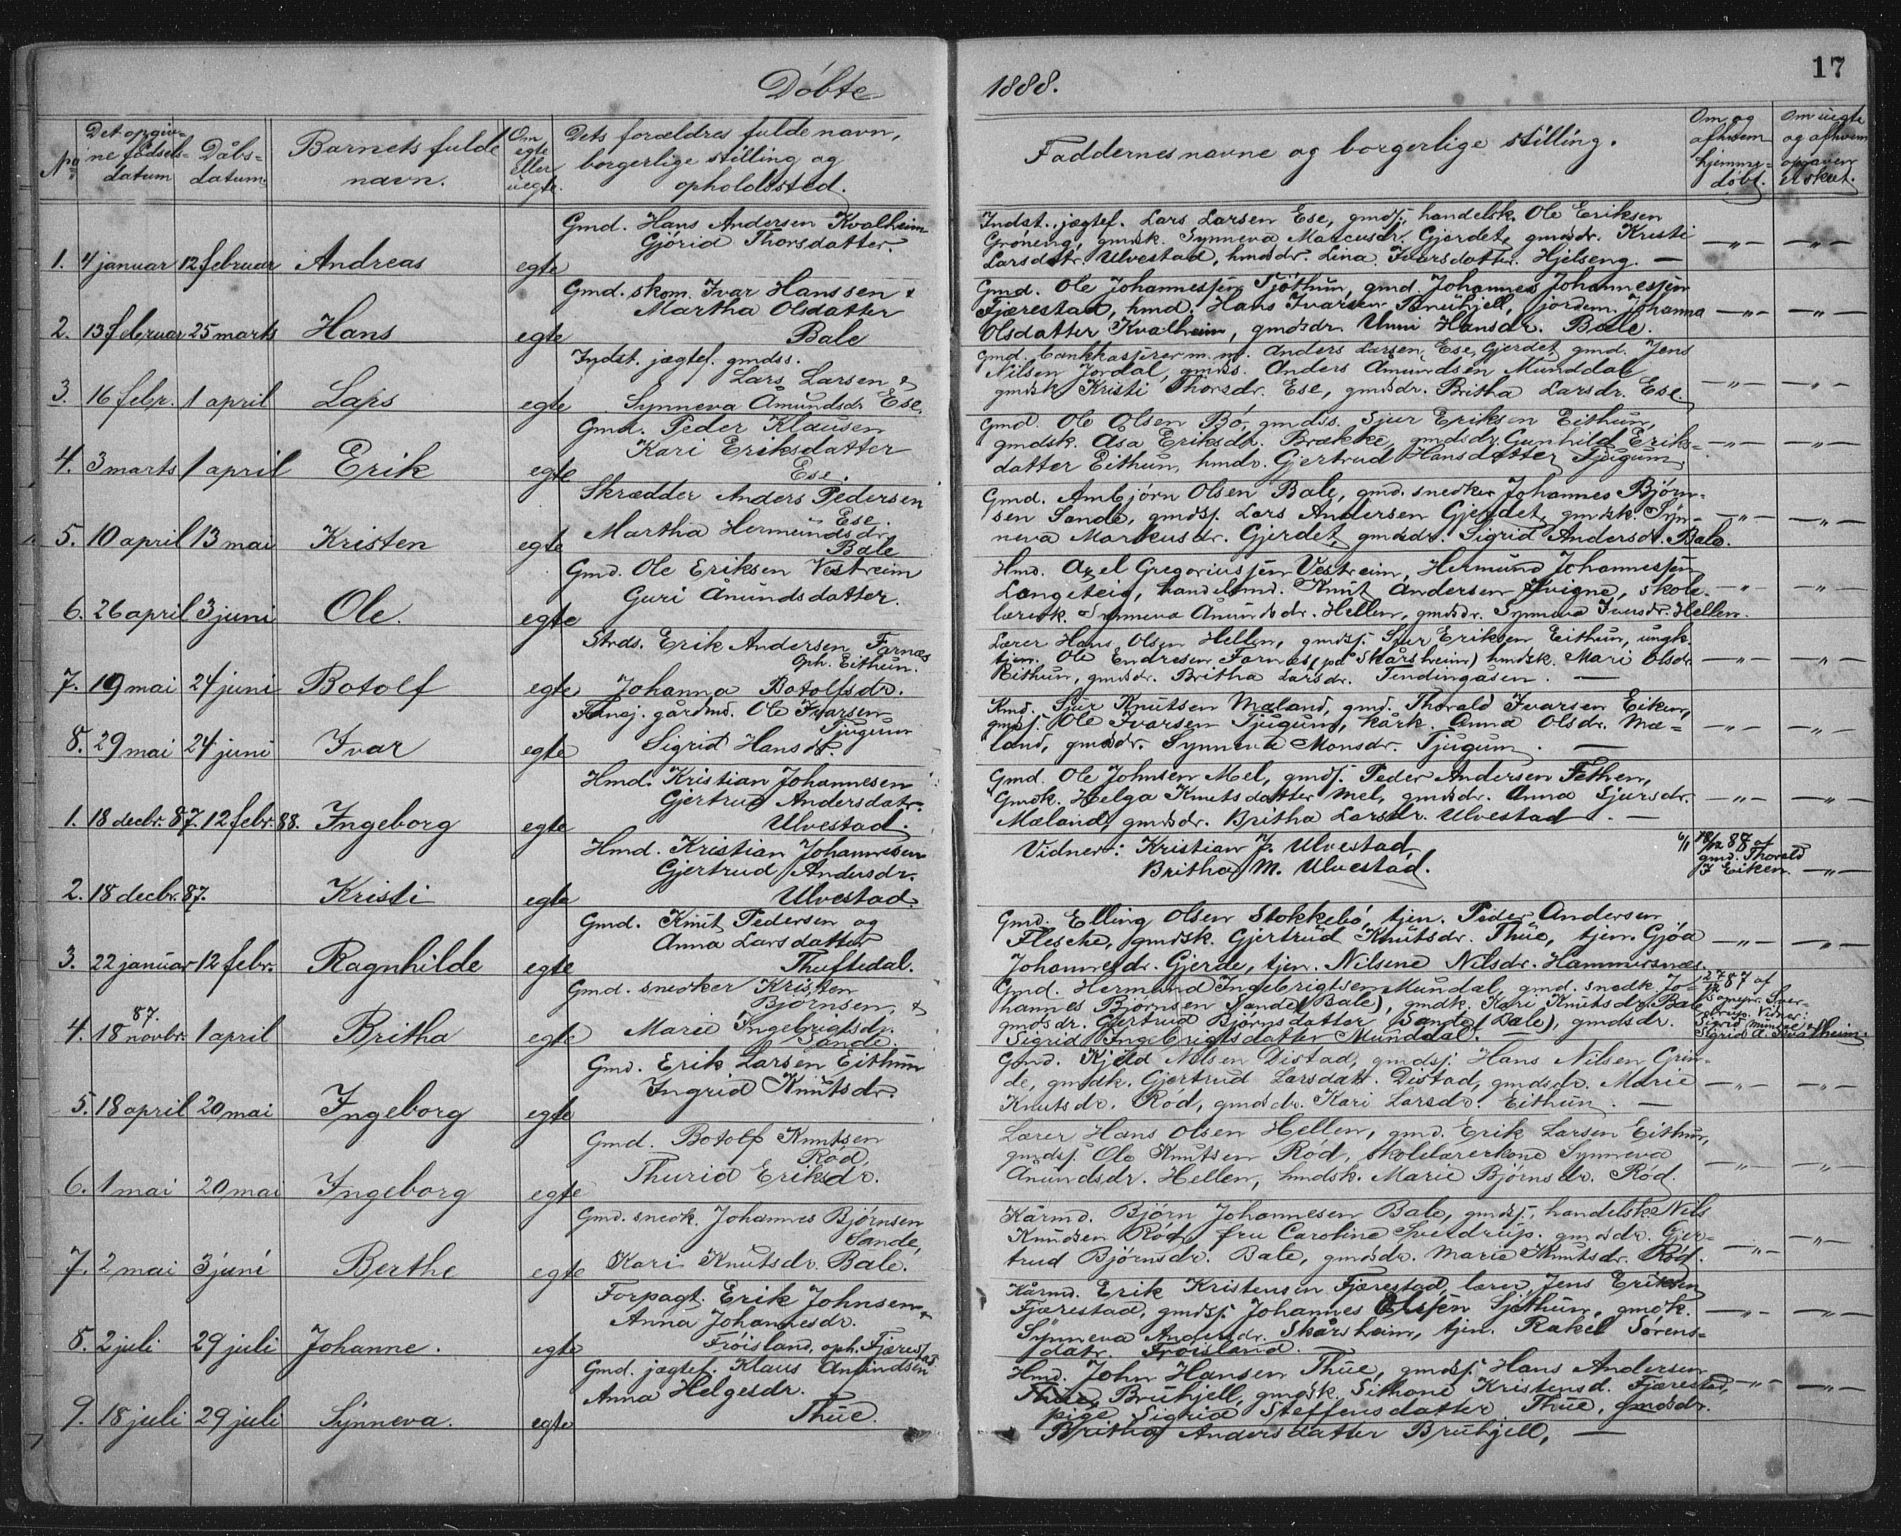 Döbte
1888.
17
No
Det opgiv=
ne födsels=
datum
Dåbs=
datum.
Barnets fulde
navn.
Om
egte
eller
uegte.
Dets forældres fulde navn,
borgerlige stilling og
opholdssted.
Faddernes navne og borgerlige stilling.
Om og
af hvem
hjemme-
döbt.
Om uegte
og af hvem
opgaven
er skeet.
1. 4 januar 12 februar Andreas egte
Gmd. Hans Andersen Kvalheim
Gjörid Thorsdatter.
Indst. jægtef. Lars Larsen Ese, gmdsj. handelsk. Ole Eriksen
Gröneng, gmdsk. Synneva Marcusdr. Gjerdet, gmdsdr. Kristi
Larsdatr. Ulvestad, hmdsdr. Lina Ivarsdatter Hjelseng. —
—"— —"—
2. 13 februar 25 marts Hans egte
Gmd. skom. Ivar Hanssen &
Martha Olsdatter
Bale
Gmd. Ole Johannessen Sjöthun, gmd. Johannes Johannessen
Fjærestad, hmd. Hans Ivarsen Bruhjell, jordem. Johanna
Olsdatter Kvalheim, gmdsdr. Unni Hansdr. Bale.
—"— —"—
3. 16 febr. 1 april Lars egte
Indst. jægtef. gmdss.
Lars Larsen &
Synneva Amundsdr. Ese.
Gmd. bankkasserer m.m. Anders Larsen Ese Gjerdet, gmd. Jens
Nilsen Jordal, gmdss. Anders Amundsen Munddal
gmdsk. Kristi Thorsdr. Ese, gmdsdr. Britha Larsdr. Ese.
—"— —"—
4. 3 marts 1 april Erik egte
Gmd. Peder Klausen
Kari Eriksdatter
Ese.
Gmd. Ole Olsen Bö, gmdss. Sjur Eriksen Eithun,
gmdsk. Åsa Eriksdr. Brække, gmdsdr. Gunhild Erik-
datter Eithun, hmdr. Gjertrud Hansdatter Tjugum
—"— —"—
5. 10 april 13 mai Kristen egte
Skrædder Anders Pedersen
Ese.
Martha Hermundsdr.
Bale
Gmd. Ambjörn Olsen Bale, gmd. snedker Johannes Björn-
sen Sande, gmdsj. Lars Andersen Gjerdet, gmdsk. Syn-
neva Markusdr. Gjerdet, gmdsdr. Sigrid Andersdr. Bale.
—"— —"—
6. 26 april 3 juni Ole. egte
Gmd. Ole Eriksen Vestreim
Guri Anundsdatter.
Hmd. Axel Gregoriussen Vestreim, Hermund Johannessen
Langeteig, handelsmd. Knut Andersen Hvigne, skole-
lærersk. Synneva Anundsdr. Hellen, gmdsdr. Synneva Ivarsdr. Hellen.
—"— —"—
7. 19 mai 24 juni Botolf egte
Strds. Erik Andersen Farnæs
Oph. Eithun.
Johanna Botolfsdr.
Lærer Hans Olsen Hellen, gmdsj. Sjur Eriksen Eithun, ungk.
tjen. Ole Endresen Farnæs (på Skårsheim) hmdsk. Mari Olsdr.
Eithun, gmdsdr. Britha Larsdr. Tendingåsen. —
—"— —"—
8. 29 mai 24 juni Ivar egte
gårdmd. Ole Ivarsen
Tjugum
Sigrid Hansdr.
Kmd. Sjur Knutsen Mæland, gmd. Thorald Ivarsen Eiken,
gmdsj. Ole Ivarsen Tjugum, kårk. Anna Olsdr. Mæ-
land, gmdsdr. Synneva Monsdr. Tjugum. —
—"— —"—
1. 18 decbr. 87. 12 febr. 88. Ingeborg egte
Hmd. Kristian Johannesen
Gjertrud Andersdatr.
Ulvestad.
Gmd. Ole Johnsen Mel, gmdsj. Peder Andersen Fethen,
Gmdk. Helga Knutsdatter Mel, gmdsdr. Anna Sjursdr.
Mæland, gmdsdr. Britha Larsdr. Ulvestad. —
—"— —"—
2. 18 decbr. 87. Kristi egte
Hmd. Kristian Johannesen
Gjertrud Andersdr.
Ulvestad.
Vidner: Kristian J. Ulvestad,
Britha M. Ulvestad.
18/12 88 af
gmd. Thorald
I Eiken. —"—
3. 22 januar 12 febr. Ragnhilde egte
Gmd. Knut Pedersen og
Anna Larsdatter
Thuftedal.
Gmd. Elling Olsen Stokkebö, tjen. Peder Andersen
Flesche, gmdsk. Gjertrud Knutsdr. Thue, tjen. Gjöa
Johannesdr. Gjerde, tjen. Nilsine Nilsdr. Hammersnæs.
—"— —"—
4. 18 novbr. 87. 1 april Britha egte
Gmd. snedker Kristen
Björnsen &
Marie Ingebrigtsdr.
Sande.
Gmd. Hermund Ingebrigtsen Mundal, gmd. snedk. Jo-
hannes Björnsen Sande (Bale), gmdk. Kari Knutsdr. Bale
gmdsdr. Gjertrud Björnsdatter Sande (Bale), gmdsdr.
Sigrid Ingebrigtsdatter Munddal.
87 af
Sognepr. Sver-
drup. Vidner:
Sigrid Mundal &
Sigrid A. Kvalheim.
5. 18 april 20 mai Ingeborg egte
Gmd. Erik Larsen Eithun
Ingrid Knutsdr.
Gmd. Kjeld Nilsen Distad, gmdsj. Hans Nilsen Grin-
de, gmdk. Gjertrud Larsdatt. Distad, gmdsdr. Marie
Knutsdr. Röd, gmdsdr. Kari Larsdr. Eithun. —
—"— —"—
6. 1 mai 20 mai Ingeborg egte
Gmd. Botolf Knutsen
Röd,
Thurid Eriksdr.
Lærer Hans Olsen Hellen, gmd. Erik Larsen Eithun,
gmdsj. Ole Knutsen Röd, skolelærerkone Synneva
Anundsdr. Hellen, hmdsk. Marie Björnsdr. Röd.
—"— —"—
7. 2 mai 3 juni Berthe egte
Gmd. snedk. Johannes Björnsen
Sande,
Kari Knutsdr. Bale.
Kårmd. Björn Johannesen Bale, gmdsj., handelsk. Nils
Knudsen Röd, fru Caroline Sverdrup. gmdsdr. Gjer-
trud Björnsdr. Bale, gmdsdr. Marie Knutsdr. Röd.
—"— —"—
8. 2 juli 29 juli Johanne. egte
Forpagt. Erik Johnsen &
Anna Johannesdr.
Fröisland, oph. Fjærestad.
Kårmd. Erik Kristensen Fjærestad, lærer Jens Eriksen
Fjærestad, gmdsj. Johannes Olssen Sjöthun, gmdk.
Synneva Andersdr. Skårsheim, tjen. Rakel Sörens-
datr. Fröisland.
—"— —"—
9. 18 juli 29 juli Synneva. egte
Gmd. jægtef. Klaus Amundsen
Anna Helgesdr.
Thue.
Hmd. John Hansen Thue, gmdsj. Hans Andersen
Bruhjell, gmdsk. Sithone Kristensd. Fjærestad,
pige Sigrid Steffensdatter Thue, gmdsdr.
Britha Andersdatter Bruhjell, —
—"— —"—